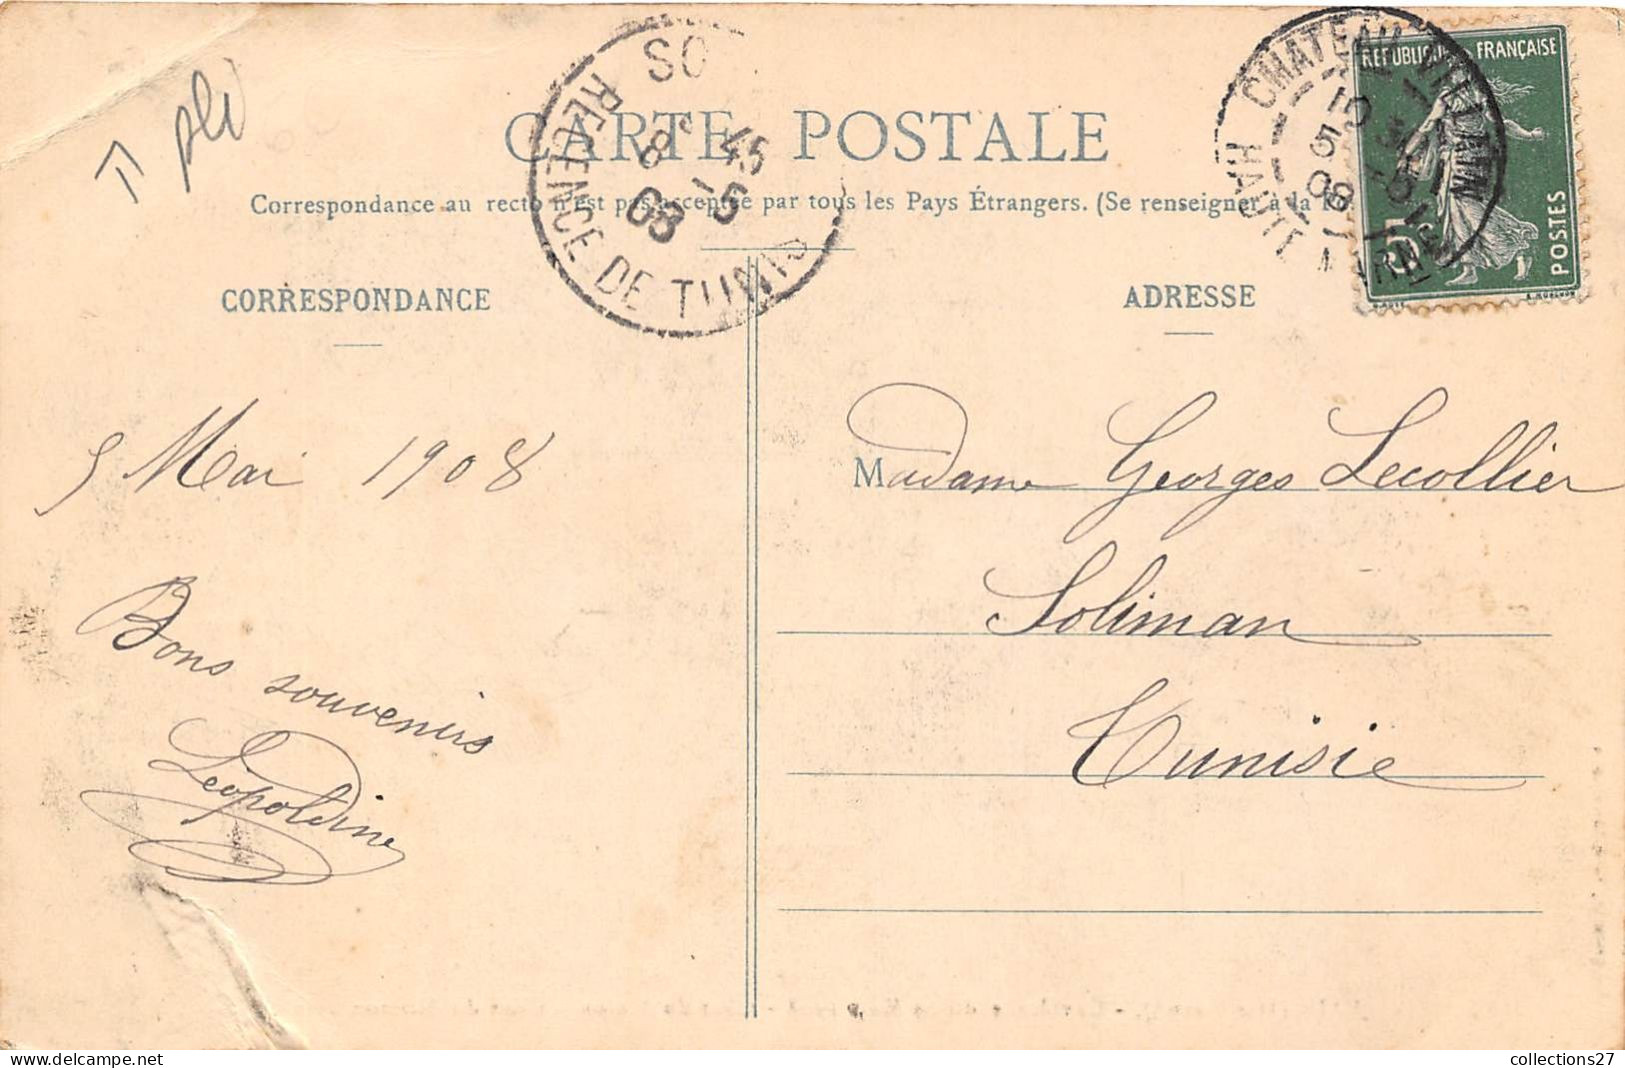 II pli
CARTE POSTALE
Correspondance au recto n'est pas acceptée par tous les Pays Étrangers. (Se renseigner à la
CORRESPONDANCE
ADRESSE
SO
REGENCE DE TUNIS
8 45
5
08
CHATEAU-VILLAIN
HAUTE MARNE
10
5 5
08
RÉPUBLIQUE FRANÇAISE
5c
POSTES
5 Mai 1908
Bons souvenirs
Léopoldine
Madame Georges Lecollier
Soliman
Tunisie
collections27